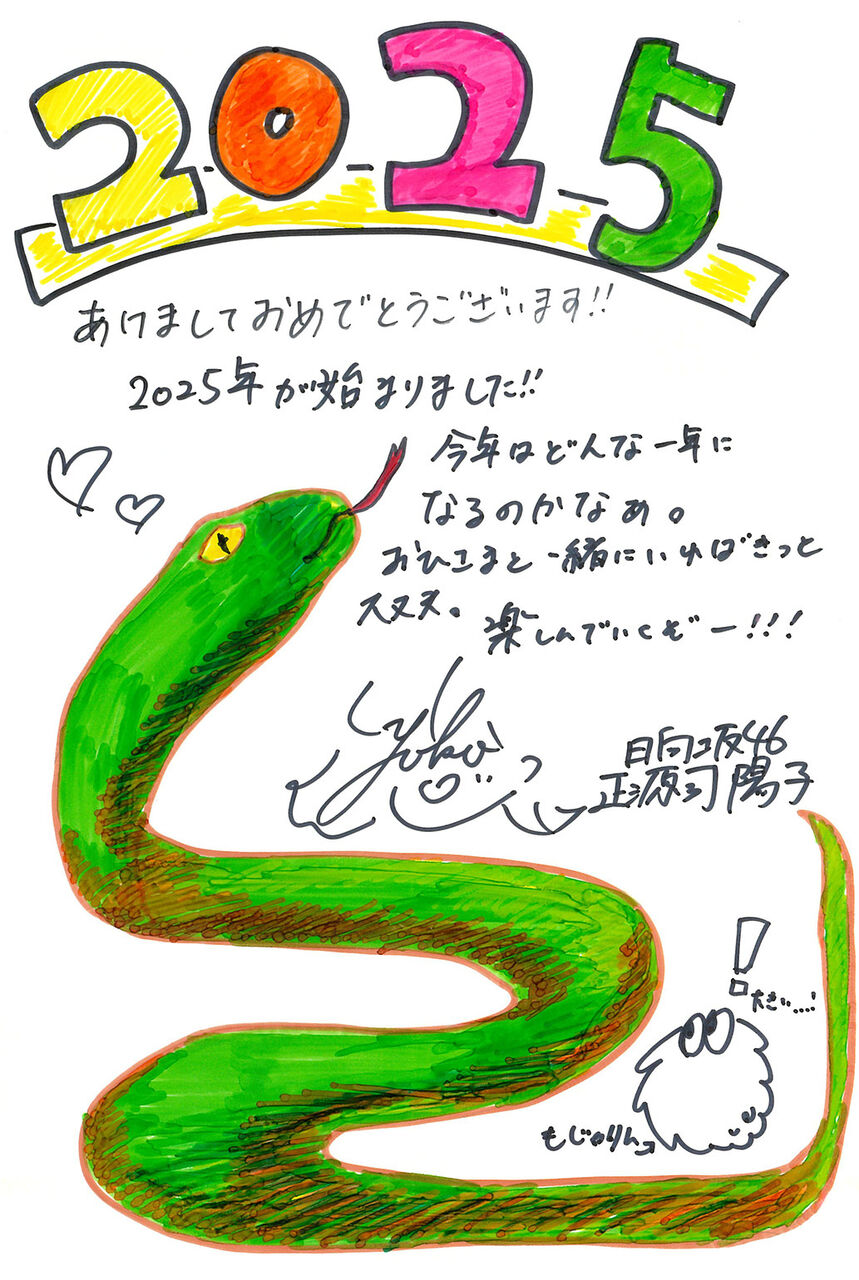 2025
あけましておめでとうございます!!
2025年が始まりました!!
今年はどんな一年に
なるのかなぁ。
おひさまと一緒にいればきっと
大丈夫。
楽しんでいくぞー!!!
yoko
日向坂46
正源司陽子
!
大きい....!
もじゃりん